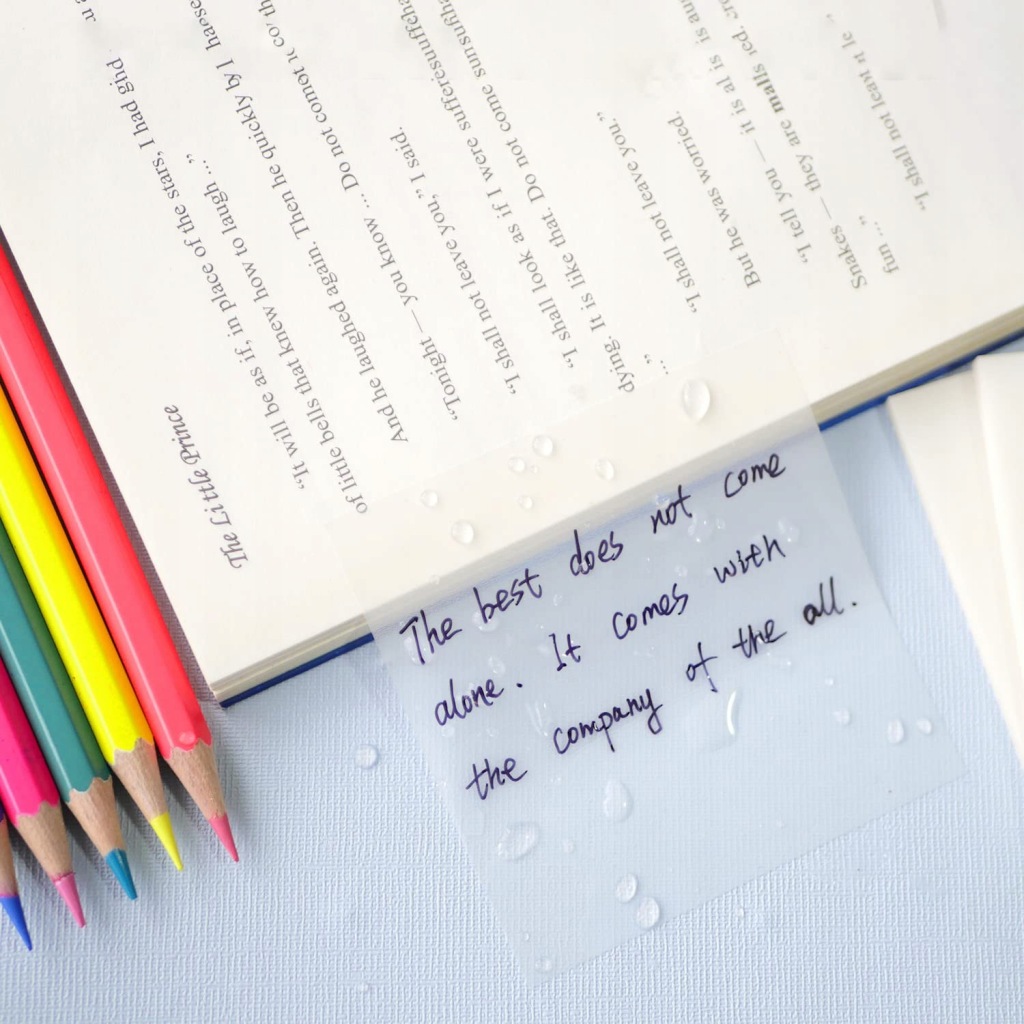 The Little Prince
"It will be as if, in place of the stars, I had
of little bells that knew how to laugh ..."
And he laughed again. Then he quickly by I
"Tonight — you know ... Do not
"I shall not leave you," I said.
"I shall look as if I were
dying. It is like that. Do not come
..."
"I shall not leave you."
But he was worried.
"I tell you — it is al is is
Snakes — they are malls
fun ..."
"I shall not least
The best does not come
alone. It comes with
the company of the all.